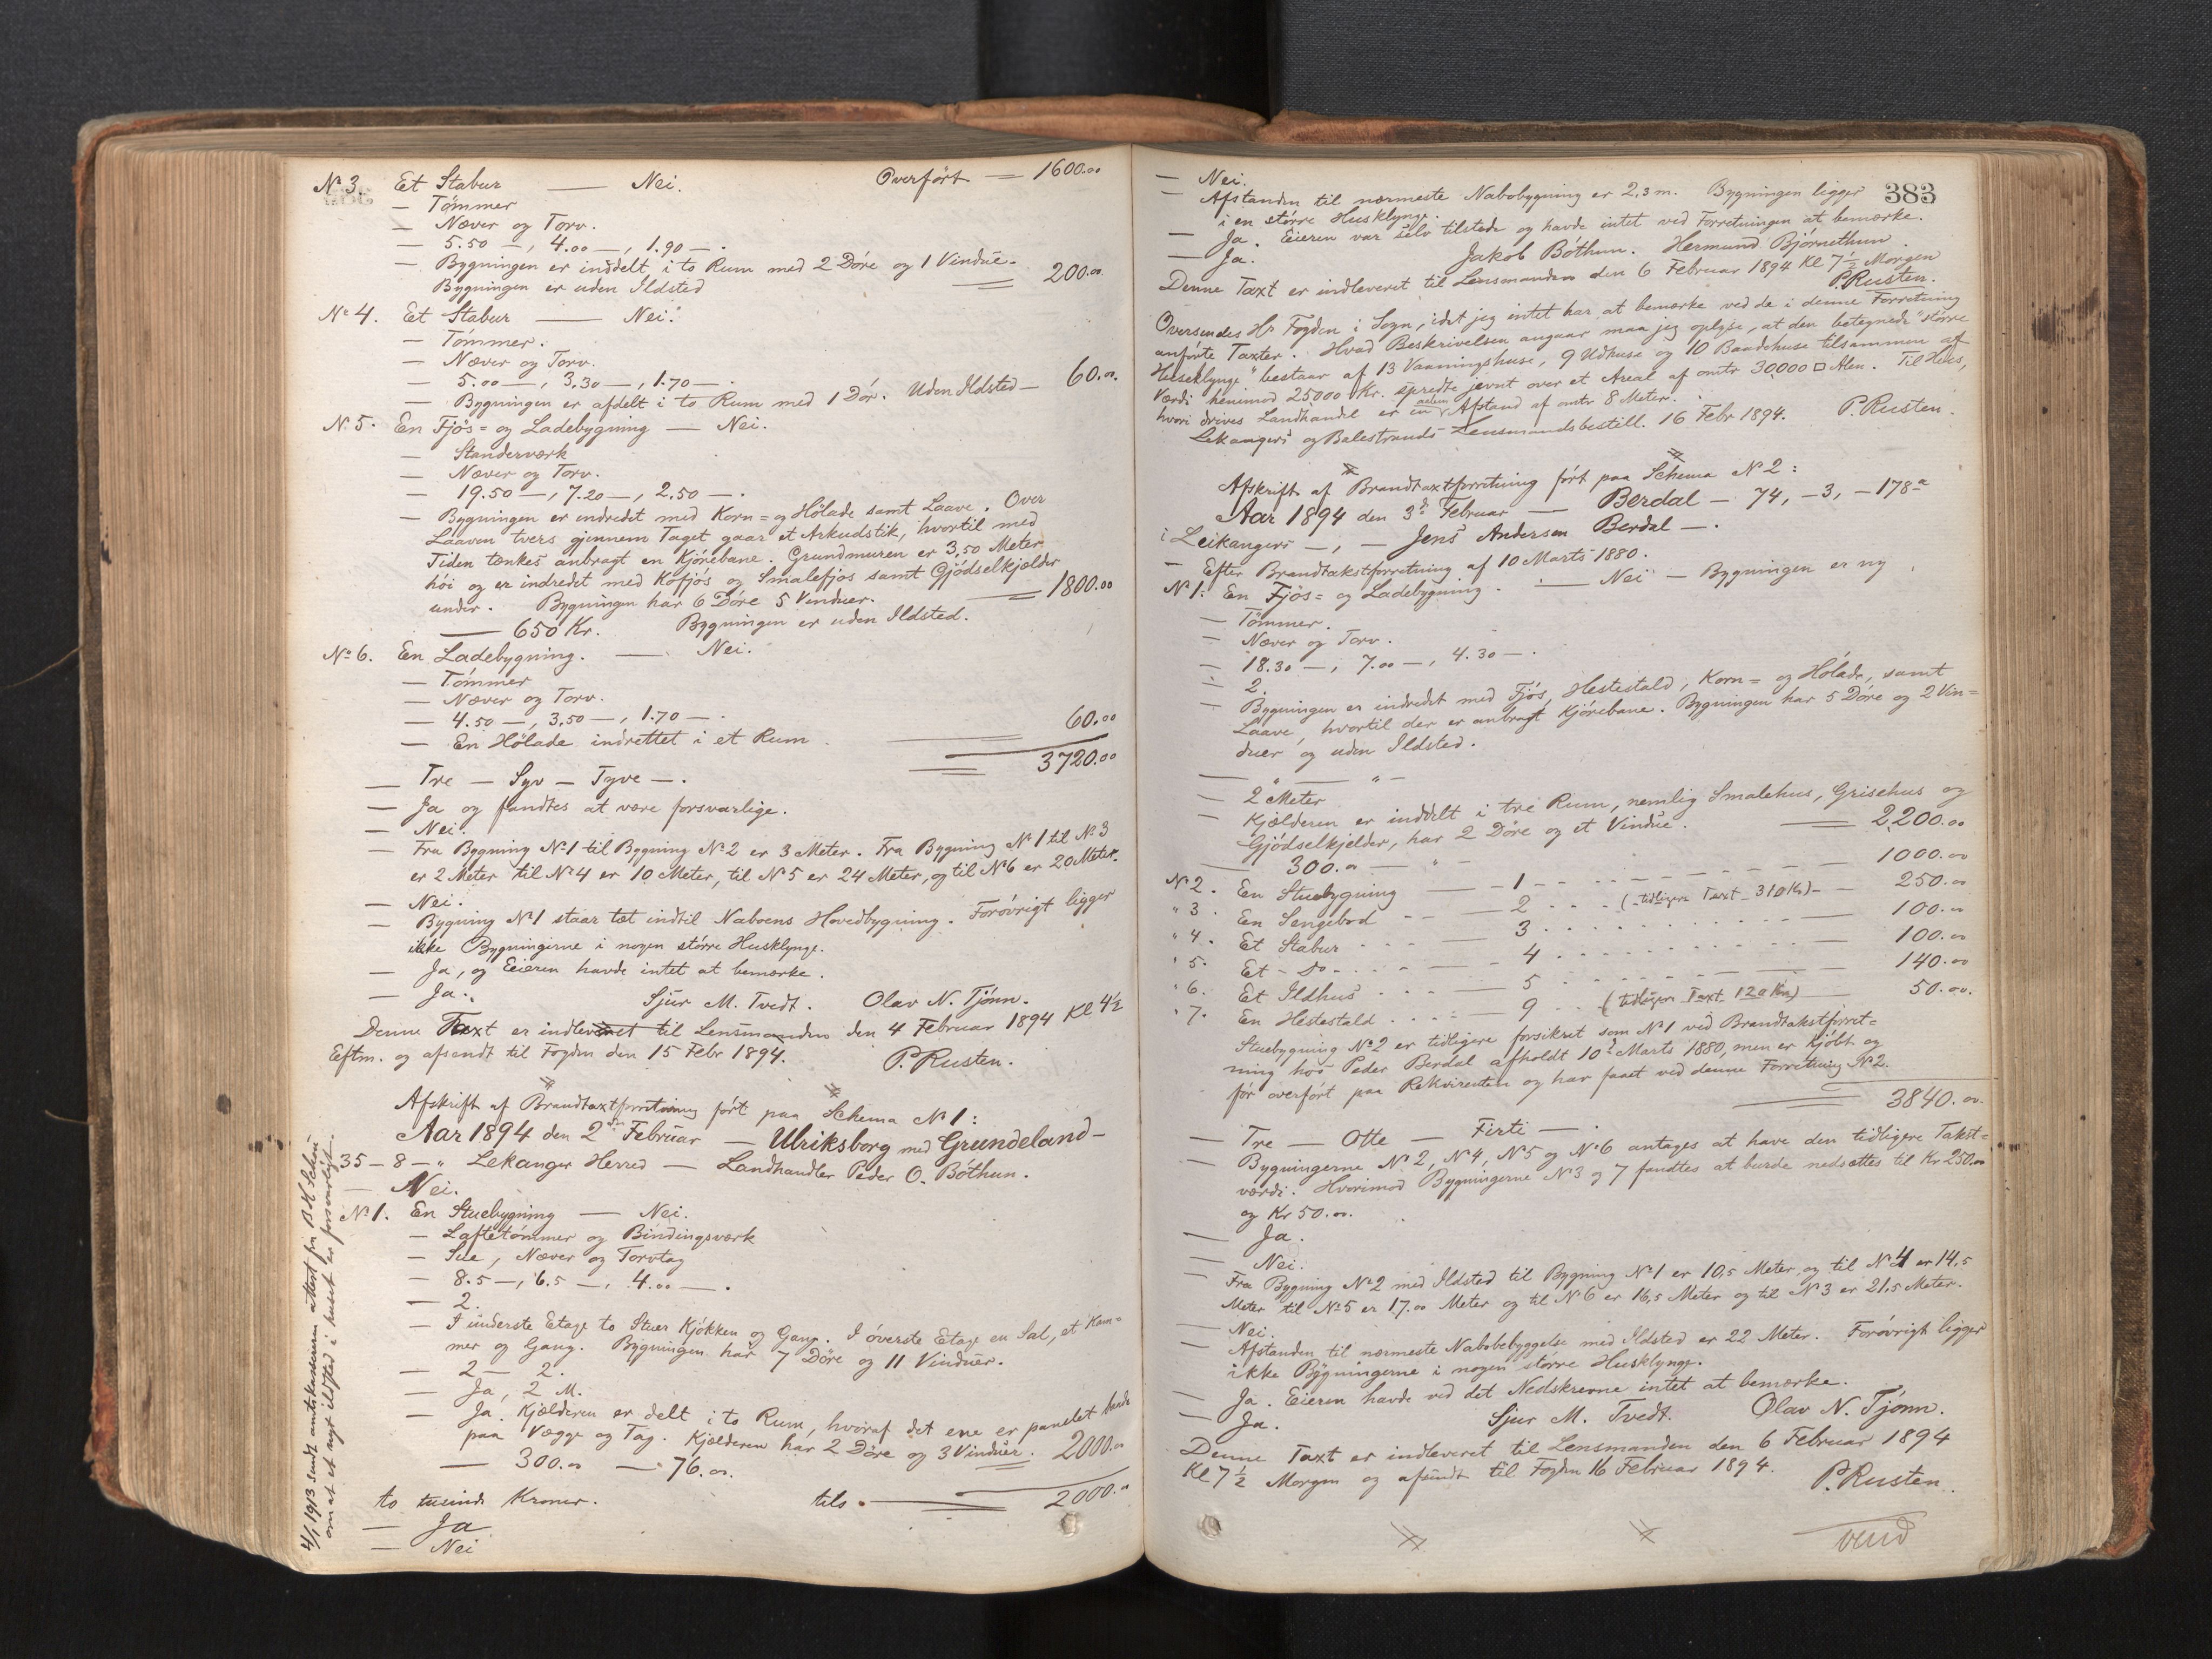 No 3. Et Stabur — Nei. Overført = 1600.00
— Tømmer
— Næver og Torv.
— 5.50 —, 4.00 —, 1.90 —.
— Bygningen er inddelt i to Rum med 2 Døre og 1 Vindue.
Bygningen er uden Ildsted = 200.00
No 4. Et Stabur — Nei.
— Tømmer.
— Næver og Torv.
— 5.00 —, 3,30 —, 1.70 —.
— Bygningen er afdelt i to Rum med 1 Dør. Uden Ildsted — 60.00.
No 5. En Fjøs- og Ladebygning — Nei.
— Standerværk
— Næver og Torv.
— 19.50 —, 7.20 —, 2.50 —.
— Bygningen er indredet med Korn= og Hølade samt Laave. Over
Laaven tvers gjennem Taget gaar et Arkudstik, hvortil med
Tiden tænkes anbragt en Kjørebane. Grundmuren er 3,50 Meter
høi og er indredet med Kofjøs og Smalefjøs samt Gjødselkjælder
under. Bygningen har 6 Døre 5 Vinduer. = 1800.00
— 650 Kr. Bygningen er uden Ildsted.
No 6. En Ladebygning. — Nei.
— Tømmer
— Næver og Torv.
— 4.50 —, 3,50 —, 1.70 —.
— En Hølade indrettet i et Rum = 60.00
3720.00
— Tre — Syv — Tyve —.
— Ja og fandtes at være forsvarlige.
— Nei.
— Fra Bygning No 1 til Bygning No 2 er 3 Meter. Fra Bygning No 1 til No 3
er 2 Meter til No 4 er 10 Meter, til No 5 er 24 Meter, og til No 6 er 20 Meter.
— Nei.
— Bygning No 1 staar tæt indtil Naboens Hovedbygning. Forøvrigt ligger
ikke Bygningerne i nogen større Husklynge.
— Ja, og Eieren havde intet at bemærke.
— Ja. Sjur M. Tvedt. Olav N. Tjønn.
Denne Taxt er indleveret til Lensmanden den 4 Februar 1894 Kl 4½
Eftm. og afsendt til Fogden den 15 Febr 1894. P. Rusten.
Afskrift af Brandtaxtforretning ført paa Schema No 1:
Aar 1894 den 2den Februar — Ulriksborg med Grundeland —
35 — 8 — „ Lekanger Herred — Landhandler Peder O. Bøthun.
— Nei.
No 1. En Stuebygning — Nei.
— Laftetømmer og Bindingsværk
— Sue, Næver og Torvtag
— 8.5 —, 6.5 —, 4.00 —.
— 2.
— I underste Etage to Stuer Kjøkken og Gang. I øverste Etage en Sal, et Kam=
mer og Gang. Bygningen har 7 Døre og 11 Vinduer.
— 2 — 2.
— Ja, 2 M.
— Ja. Kjælderen er delt i to Rum, hvoraf det ene er panelet baade
paa Vægge og Tag. Kjælderen har 2 Døre og 3 Vinduer. 2000.00
— 300.00 — 76.00.
to tusinde Kroner. tils. = 2000.00
— Ja
— Nei
4/1 1913 sendt amtskassereren attest fra
om at et nyt ildsted i huset er forsvarligt.
383
— Nei.
— Afstanden til nærmeste Nabobygning er 2,3 m. Bygningen ligger
i en større Husklynge.
— Ja. Eieren var selv tilstede og havde intet ved Forretningen at bemærke.
— Ja. Jakob Bøthun. Hermund Bjørnethun.
Denne Taxt er indleveret til Lensmanden den 6 Februar 1894 Kl 7½ Morgen
P. Rusten.
Oversendes Hr Fogden i Sogn, idet jeg intet har at bemærke ved de i denne Forretning
anførte Taxter. Hvad Beskrivelsen angaar maa jeg oplyse, at den betegnede "større
Husklynge" bestaar af 13 Vaaningshuse, 9 Udhuse og 10 Baadehuse tilsammen af
Værdi henimod 25000 Kr. spredte jevnt over et Areal af omtr 30000 □ Alen. Til Huus,
hvori drives Landhandel er en Afstand af omtr 8 Meter.
Lekangers og Balestrands Lensmandsbestill. 16 Febr 1894. P. Rusten.
Afskrift af Brandtaxtforretning ført paa Schema No 2:
Aar 1894 den 3de Februar — Berdal — 74, — 3, — 178 a
i Leikangers —, — Jens Andersen Berdal —.
— Efter Brandtakstforretning af 10 Marts 1880.
No 1. En Fjøs= og Ladebygning. — Nei — Bygningen er ny.
— Tømmer.
— Næver og Torv.
— 18.30 —, 7.00 —, 4.30 —.
— 2.
— Bygningen er indredet med Fjøs, Hestestald, Korn= og Hølade, samt
Laave, hvortil der er anbragt Kjørebane. Bygningen har 5 Døre og 2 Vin=
duer og uden Ildsted.
— „ — „ —
— 2 Meter
— Kjælderen er inddelt i tre Rum, nemlig Smalehus, Grisehus og
Gjødselkjelder, har 2 Døre og et Vindue. = 2200.00
— 300.00 — „ —
No 2. En Stuebygning — 1 — 1000.00
„ 3. En Sengebod — 2 (tidligere Taxt 310 Kr) — 250.00
„ 4. Et Stabur — 3 — 100.00
„ 5. Et — Do — 4 — 100.00
„ 6. Et Ildhus — 5 — 140.00
„ 7. En Hestestald — 9 (tidligere Taxt 120 Kr) 50.00.
Stuebygning No 2 er tidligere forsikret som No 1 ved Brandtakstforret=
ning hos Peder Berdal afholdt 10de Marts 1880, men er kjøbt og
før overført paa Rekvirenten og har faaet ved denne Forretning No 2.
3840.00.
— Tre — Otte — Firti —.
— Bygningerne No 2, No 4, No 5 og No 6 antages at have den tidligere Takst=
værdi. Hvorimod Bygningerne No 3 og 7 fandtes at burde nedsættes til Kr 250.00
og Kr 50.00.
— Ja.
— Nei.
— Fra Bygning No 2 med Ildsted til Bygning No 1 er 10,5 Meter og til No 4 er 14,5
Meter til No 5 er 17.00 Meter og til No 6 er 16,5 Meter og til No 3 er 21,5 Meter.
— Nei.
— Afstanden til nærmeste Nabobebyggelse med Ildsted er 22 Meter. Forøvrigt ligger
ikke Bygningerne i nogen større Husklynge.
— Ja. Eieren havde ved det Nedskrevne intet at bemærke.
— Ja. Sjur M. Tvedt. Olav N. Tjønn.
Denne Taxt er indleveret til Lensmanden den 6 Februar 1894
Kl 7½ Morgen og afsendt til Fogden 16 Februar 1894. P. Rusten.
vend